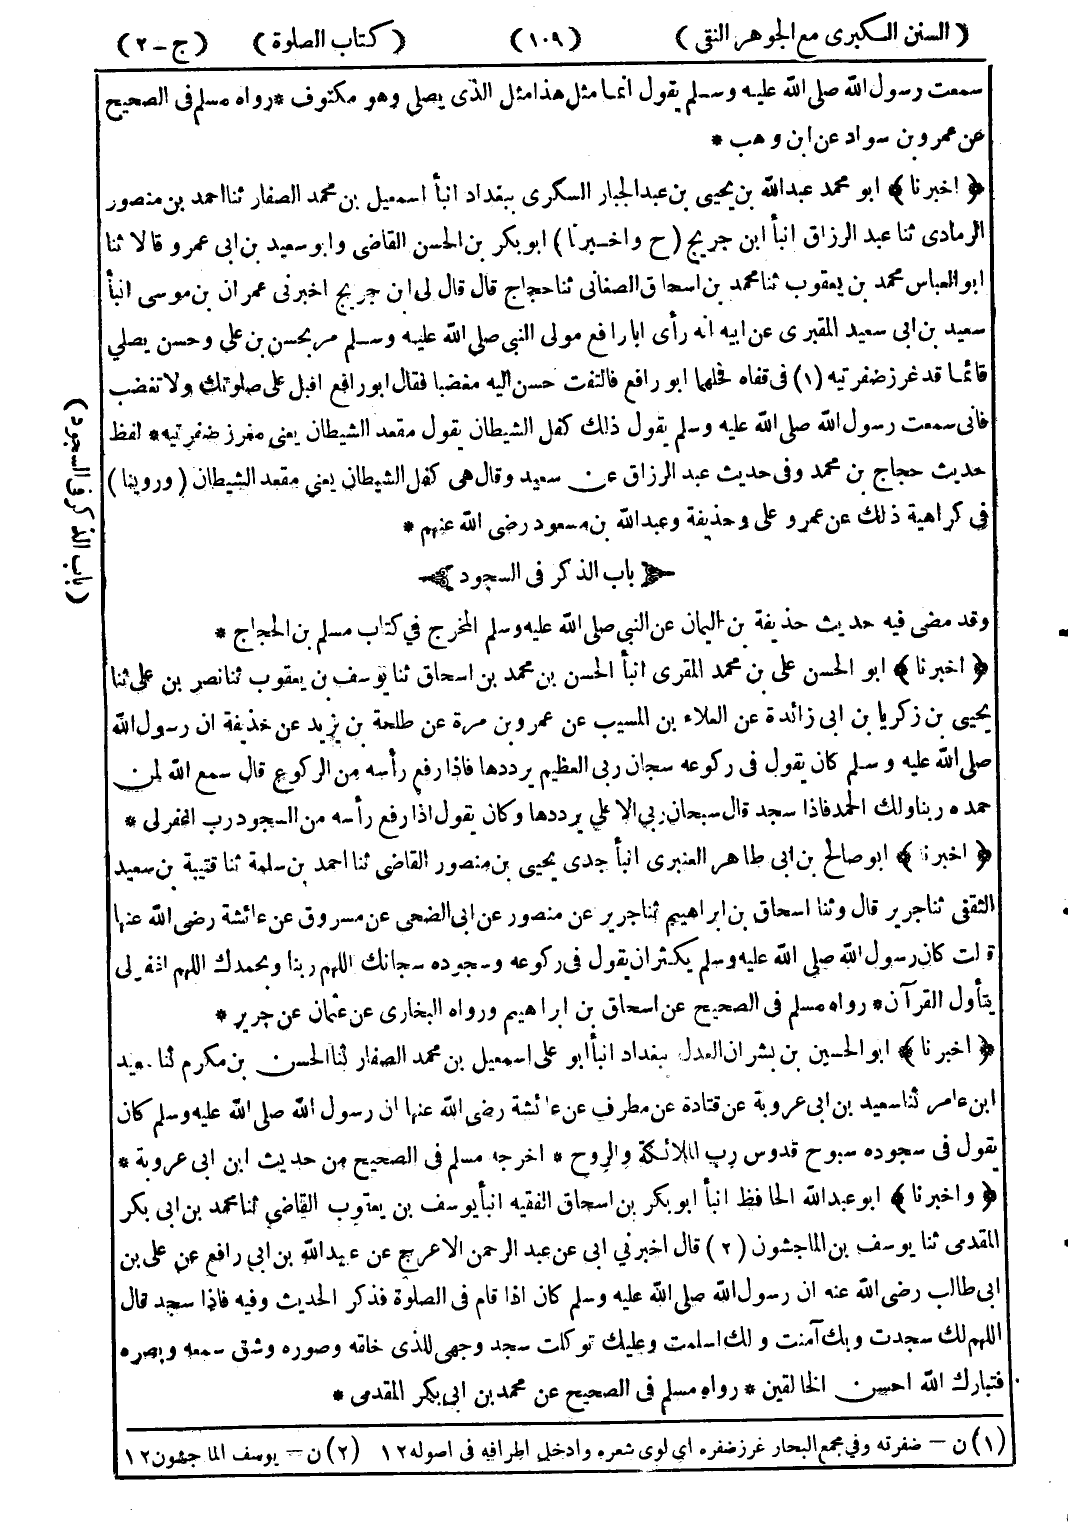 ( السنن الكبرى مع الجوهر النقى ) (١٠٩) ( كتاب الصلوة ) ( ج - ٢ )
سمعت رسول الله صلى الله عليه وسلم يقول انما مثل هذا مثل الذى يصلى وهو مكتوف * رواه مسلم فى الصحيح
عن عمرو بن سواد عن ابن وهب *
﴿ اخبرنا ﴾ ابو محمد عبدالله بن يحيى بن عبد الجبار السكرى ببغداد انبأ اسمعيل بن محمد الصفار ثنا احمد بن منصور
الرمادى ثنا عبد الرزاق انبأ ابن جريج ( ح واخبرنا ) ابو بكر بن الحسن القاضى وابو سعيد بن ابى عمرو قالا ثنا
ابو العباس محمد بن يعقوب ثنا محمد بن اسحاق الصغانى ثنا حجاج قال قال لى ابن جريج اخبرنى عمران بن موسى انبأ
سعيد بن ابى سعيد المقبرى عن ابيه انه رأى ابا رافع مولى النبى صلى الله عليه وسلم مر بحسن بن على وحسن يصلي
قائما قد غرز ضفرتيه (١) فى قفاه فحلها ابو رافع فالتفت حسن اليه مغضبا فقال ابو رافع اقبل على صلوتك ولا تغضب
فانى سمعت رسول الله صلى الله عليه وسلم يقول ذلك كفل الشيطان يقول مقعد الشيطان يعنى مغرز ضفرتيه * لفظ
حديث حجاج بن محمد وفى حديث عبد الرزاق عن سعيد وقال هى كفل الشيطان يعني مقعد الشيطان ( وروينا )
في كراهية ذلك عن عمرو على وحذيفة وعبدالله بن مسعود رضى الله عنهم *
باب الذكر فى السجود
( باب الذكر فى السجود )
وقد مضى فيه حديث حذيفة بن اليمان عن النبي صلى الله عليه وسلم المخرج في كتاب مسلم بن الحجاج *
﴿ اخبرنا ﴾ ابو الحسن على بن محمد المقرى انبأ الحسن بن محمد بن اسحاق ثنا يوسف بن يعقوب ثنا نصر بن على ثنا
يحيى بن زكريا بن ابى زائدة عن العلاء بن المسيب عن عمرو بن مرة عن طلحة بن يزيد عن حذيفة ان رسول الله
صلى الله عليه وسلم كان يقول فى ركوعه سبحان ربى العظيم يرددها فاذا رفع رأسه من الركوع قال سمع الله لمن
حمده ربنا ولك الحمد فاذا سجد قال سبحان ربي الاعلي يرددها وكان يقول اذا رفع رأسه من السجود رب اغفرلى *
﴿ اخبرنا ﴾ ابو صالح بن ابى طاهر العنبرى انبأ جدى يحيى بن منصور القاضى ثنا احمد بن سلمة ثنا قتيبة بن سعيد
الثقفى ثنا جرير قال وثنا اسحاق بن ابراهيم ثنا جرير عن منصور عن ابى الضحى عن مسروق عن عائشة رضى الله عنها
قالت كان رسول الله صلى الله عليه وسلم يكثر ان يقول فى ركوعه وسجوده سبحانك اللهم ربنا وبحمدك اللهم اغفرلى
يتأول القرآن * رواه مسلم فى الصحيح عن اسحاق بن ابراهيم ورواه البخارى عن عثمان عن جرير *
﴿ اخبرنا ﴾ ابو الحسين بن بشران العدل ببغداد انبأ ابو على اسمعيل بن محمد الصفار ثنا الحسن بن مكرم ثنا سعيد
ابن عامر ثنا سعيد بن ابى عروبة عن قتادة عن مطرف عن عائشة رضى الله عنها ان رسول الله صلى الله عليه وسلم كان
يقول فى سجوده سبوح قدوس رب الملائكة والروح * اخرجه مسلم فى الصحيح من حديث ابن ابى عروبة *
﴿ واخبرنا ﴾ ابو عبدالله الحافظ انبأ ابو بكر بن اسحاق الفقيه انبأ يوسف بن يعقوب القاضي ثنا محمد بن ابى بكر
المقدمى ثنا يوسف بن الماجشون (٢) قال اخبرني ابى عن عبد الرحمن الاعرج عن عبيدالله بن ابي رافع عن على بن
ابى طالب رضى الله عنه ان رسول الله صلى الله عليه وسلم كان اذا قام فى الصلوة فذكر الحديث وفيه فاذا سجد قال
اللهم لك سجدت وبك آمنت ولك اسلمت وعليك توكلت سجد وجهى للذى خلقه وصوره وشق سمعه وبصره
فتبارك الله احسن الخالقين * رواه مسلم فى الصحيح عن محمد بن ابى بكر المقدمى *
(١) ن – ضفرته وفي مجمع البحار غرز ضفره اي لوى شعره وادخل اطرافه فى اصوله ١٢ (٢) ن – يوسف الماجشون ١٢